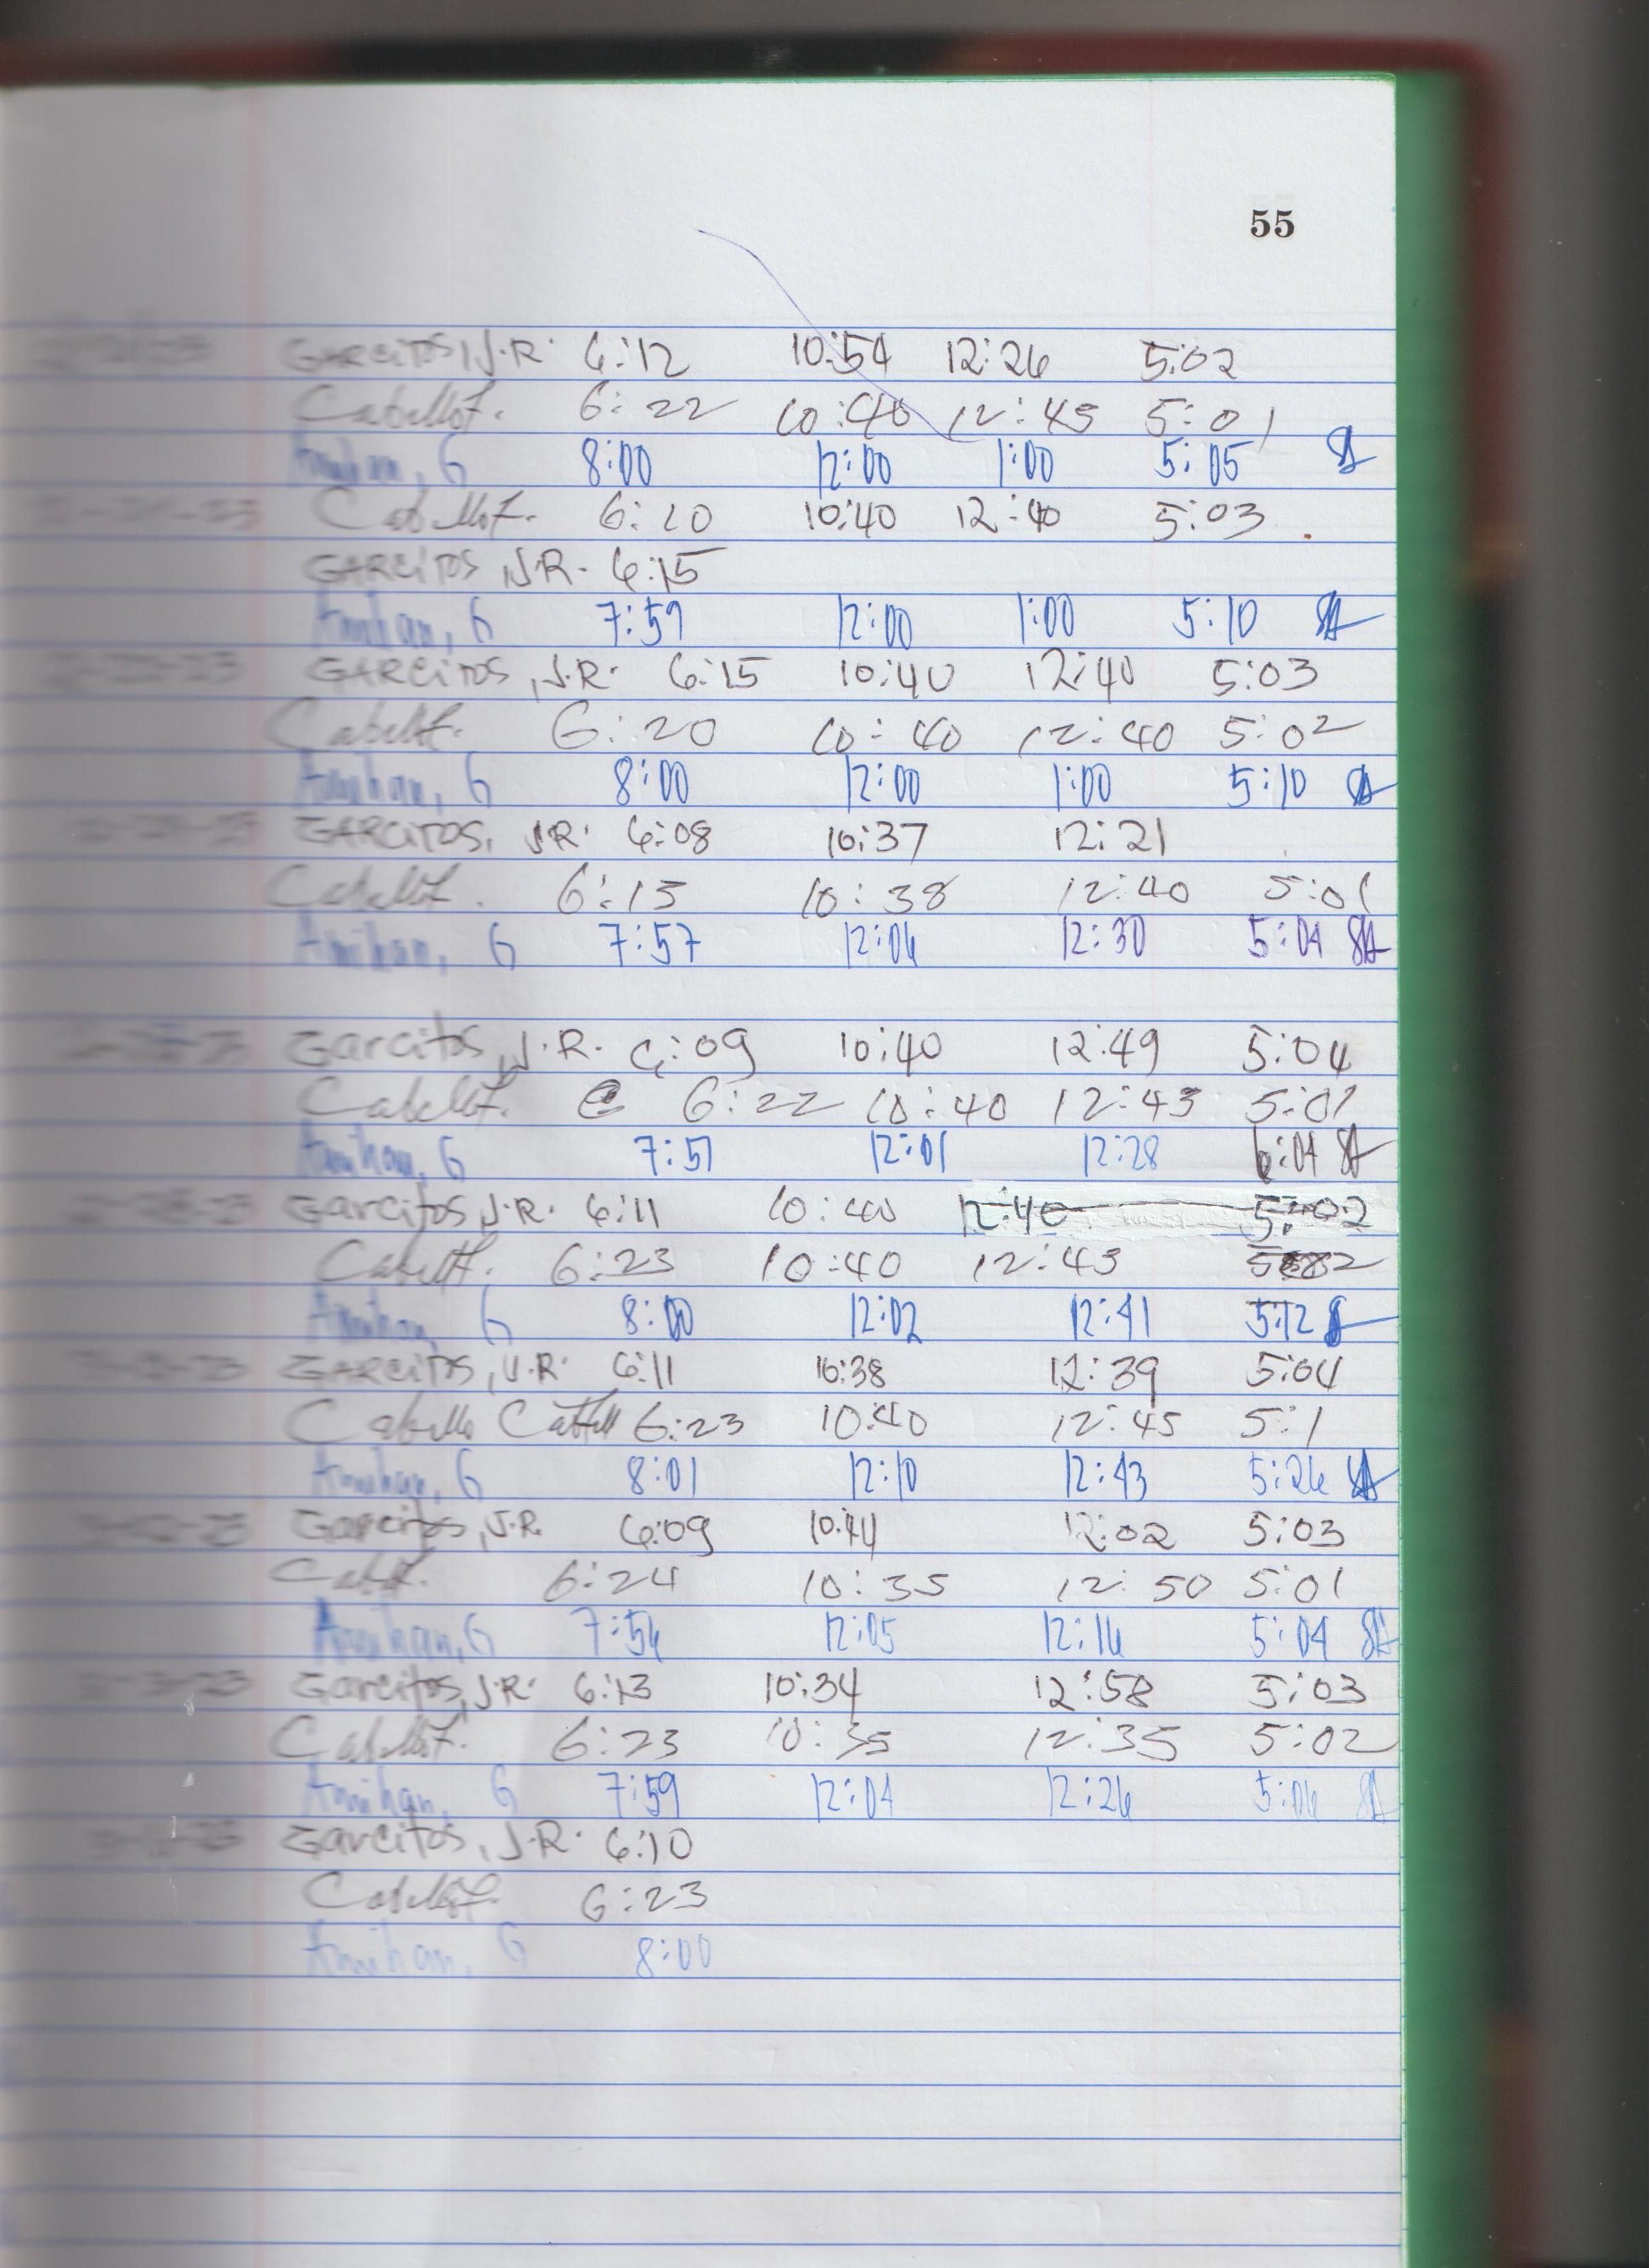 55
GARCITOS, J.R. 6:12 10:54 12:26 5:02
Cabello F. 6:22 10:40 12:45 5:01
Amihan, G 8:00 12:00 1:00 5:05
Cabello F. 6:20 10:40 12:40 5:03
GARCITOS, J.R. 6:15
Amihan, G 7:59 12:00 1:00 5:10
GARCITOS, J.R. 6:15 10:40 12:40 5:03
Cabello F. 6:20 10:40 12:40 5:02
Amihan, G 8:00 12:00 1:00 5:10
GARCITOS, J.R. 6:08 10:37 12:21
Cabello F. 6:15 10:38 12:40 5:01
Amihan, G 7:57 12:06 12:30 5:04
Garcitos, J.R. 6:09 10:40 12:49 5:04
Cabello F. 6:22 10:40 12:43 5:01
Amihan, G 7:51 12:01 12:28 6:04
Garcitos, J.R. 6:11 10:40 12:40 5:02
Cabello F. 6:23 10:40 12:43
Amihan, G 8:00 12:02 12:41 5:12
GARCITOS, J.R. 6:11 10:38 12:39 5:04
Cabello 6:23 10:40 12:45 5:1
Amihan, G 8:01 12:10 12:43 5:26
Garcitos, J.R. 6:09 10:41 12:02 5:03
6:24 10:35 12:50 5:01
Amihan, G 7:56 12:05 12:16 5:04
Garcitos, J.R. 6:13 10:34 12:58 5:03
Cabello F. 6:23 10:35 12:35 5:02
Amihan, G 7:59 12:04 12:26 5:06
Garcitos, J.R. 6:10
Cabello F. 6:23
Amihan, G 8:00